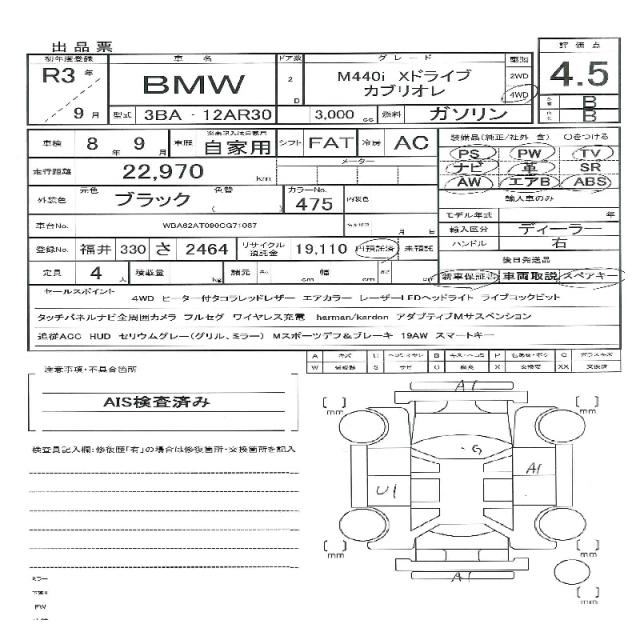 出品票
初年度登録 車名 ドア数 グレード 評価点
R3年 9月 BMW 2D M440i Xドライブ 2WD 4.5
カブリオレ 4WD
型式 3BA - 12AR30 3,000 cc 燃料 ガソリン B B
車検 8年 9月 車歴 自家用 シフト FAT 冷房 AC 装備品(純正/社外 含) ○をつける
PS PW TV
走行距離 22,970 km メーター ナビ 革 SR
AW エアB ABS
外装色 元色 ブラック 色替 ( ) カラーNo. 475 内装色 輸入車のみ
モデル年式 年
車台No. WBA62AT090CG71087 月 日 輸入区分 ディーラー
登録No. 福井 330 さ 2464 リサイクル預託金 19,110 円 預託済 未預託 ハンドル 右
後日発送品
定員 4人 積載量 kg 諸元 長 cm 幅 cm 高 cm 新車保証書 車両取説 スペアキー
セールスポイント 4WD ヒーター付タコラレッドレザー エアカラー レーザーLEDヘッドライト ライブコックピット
タッチパネルナビ全周囲カメラ フルセグ ワイヤレス充電 harman/kardon アダプティブMサスペンション
追従ACC HUD セリウムグレー(グリル、ミラー) Mスポーツデフ&ブレーキ 19AW スマートキー
注意事項・不具合箇所
AIS検査済み
検査員記入欄:修復歴「有」の場合は修復箇所・交換箇所を記入
A1
G
A1
U1
A1
mm
mm
mm
mm
mm
ミラー
下廻り
PW